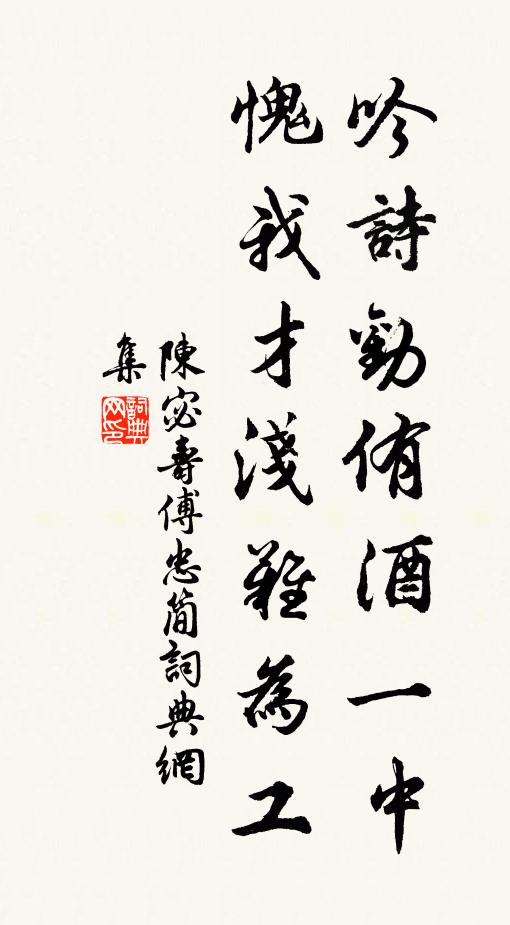 吟詩勸侑酒一中
愧我才淺難為工
陳宓壽傅忠簡詞典網
集
詞典
网印